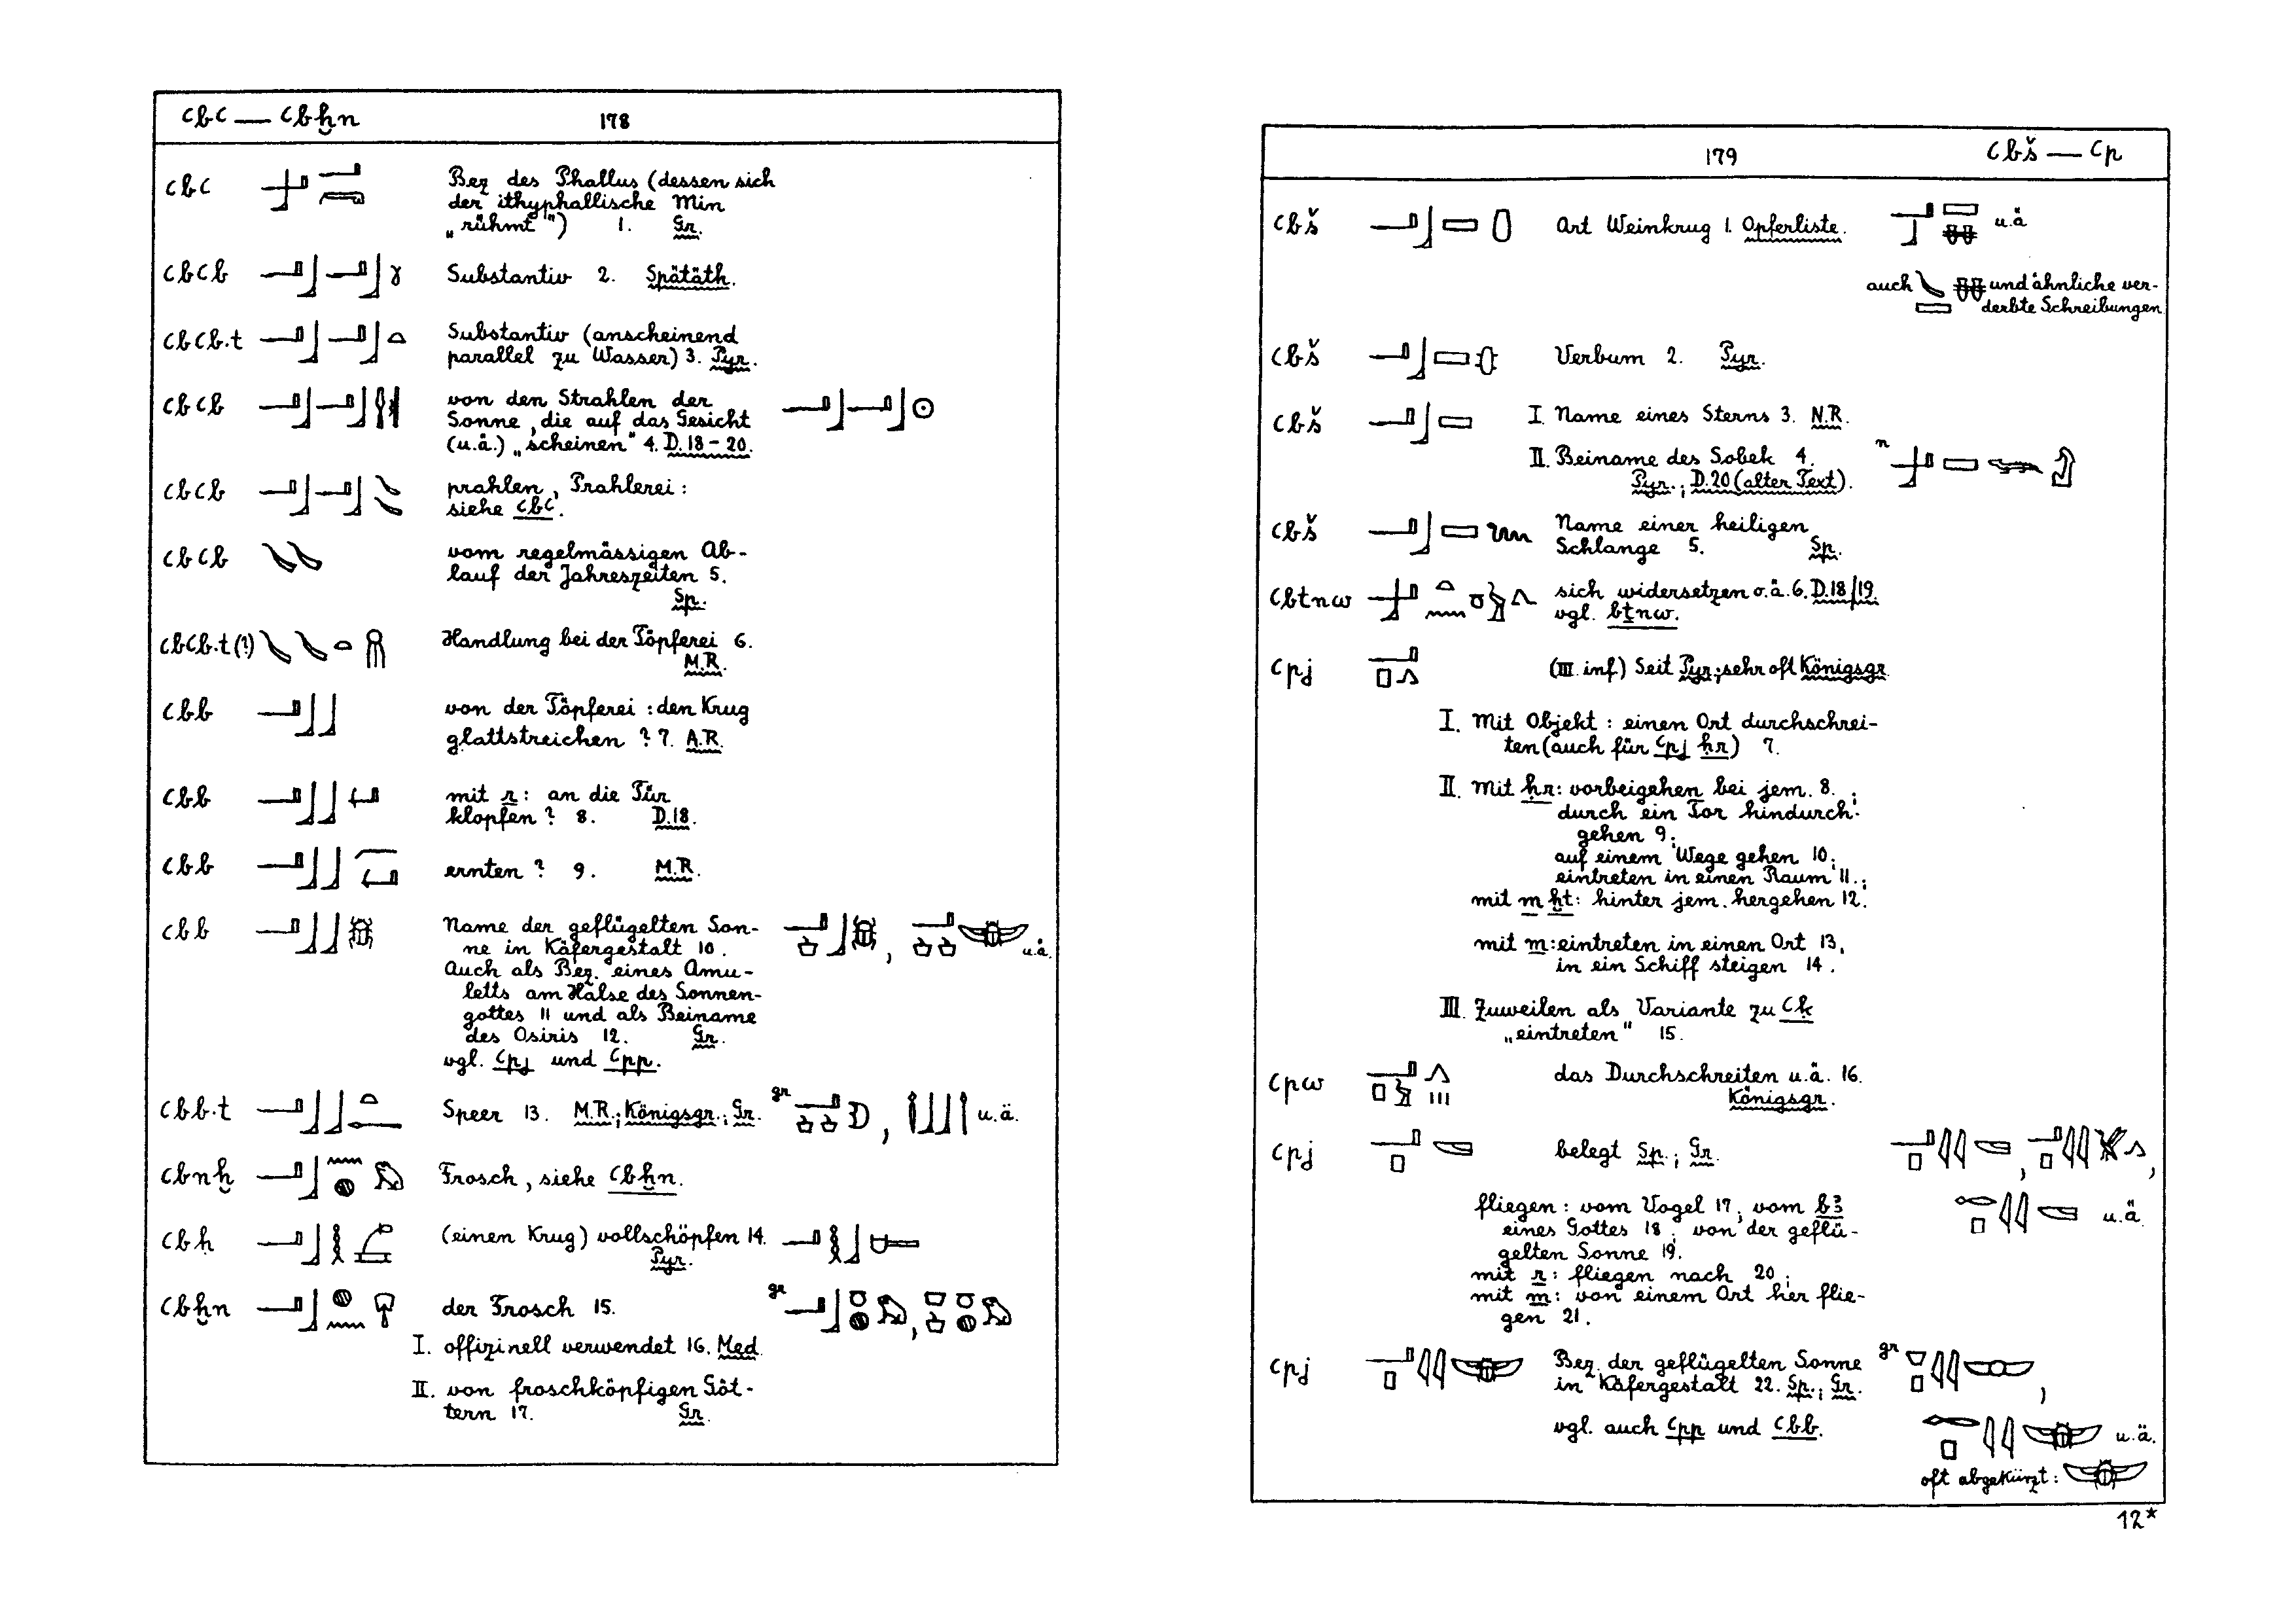 ꜥbꜥ — ꜥbḫn 178
ꜥbꜥ Bez des Phallus (dessen sich
der ithyphallische Min
„rühmt") 1. Gr.
ꜥbꜥb Substantiv 2. Spätäth.
ꜥbꜥb.t Substantiv (anscheinend
parallel zu Wasser) 3. Pyr.
ꜥbꜥb von den Strahlen der
Sonne, die auf das Gesicht
(u.ä.) „scheinen" 4. D.18-20.
ꜥbꜥb prahlen, Prahlerei:
siehe ꜥbꜥ.
ꜥbꜥb vom regelmässigen Ab-
lauf der Jahreszeiten 5.
Sp.
ꜥbꜥb.t(?) Handlung bei der Töpferei 6.
M.R.
ꜥbb von der Töpferei: den Krug
glattstreichen? 7. A.R.
ꜥbb mit r: an die Tür
klopfen? 8. D.18.
ꜥbb ernten? 9. M.R.
ꜥbb Name der geflügelten Son-
ne in Käfergestalt 10. , u.ä.
Auch als Bez. eines Amu-
letts am Halse des Sonnen-
gottes 11 und als Beiname
des Osiris 12. Gr.
vgl. ꜥpj und ꜥpp.
ꜥbb.t Speer 13. M.R.; Königsgr.; Gr. gr , u.ä.
ꜥbnḫ Frosch, siehe ꜥbḫn.
ꜥbḥ (einen Krug) vollschöpfen 14.
Pyr.
ꜥbḫn der Frosch 15. gr ,
I. offizinell verwendet 16. Med.
II. von froschköpfigen Göt-
tern 17. Gr.
179 ꜥbš — ꜥp
ꜥbš Art Weinkrug 1. Opferliste. u.ä
auch und ähnliche ver-
derbte Schreibungen
ꜥbš Verbum 2. Pyr.
ꜥbš I. Name eines Sterns 3. N.R.
II. Beiname des Sobek 4. n
Pyr.; D.20 (alter Text).
ꜥbš Name einer heiligen
Schlange 5. Sp.
ꜥbtnw sich widersetzen o.ä. 6. D.18/19.
vgl. bṯnw.
ꜥpj (III. inf.) Seit Pyr.; sehr oft Königsgr.
I. Mit Objekt: einen Ort durchschrei-
ten (auch für ꜥpj ḥr) 7.
II. Mit ḥr: vorbeigehen bei jem. 8.;
durch ein Tor hindurch-
gehen 9;
auf einem Wege gehen 10;
eintreten in einen Raum 11.;
mit m ḫt: hinter jem. hergehen 12.
mit m: eintreten in einen Ort 13,
in ein Schiff steigen 14.
III. Zuweilen als Variante zu ꜥḳ
„eintreten" 15.
ꜥpw das Durchschreiten u.ä. 16.
Königsgr.
ꜥpj belegt Sp.; Gr. , ,
fliegen: vom Vogel 17, vom bꜣ u.ä
eines Gottes 18; von der geflü-
gelten Sonne 19.
mit r: fliegen nach 20;
mit m: von einem Ort her flie-
gen 21.
ꜥpj Bez. der geflügelten Sonne gr
in Käfergestalt 22. Sp.; Gr. ,
vgl. auch ꜥpp und ꜥbb. u.ä.
oft abgekürzt:
12*